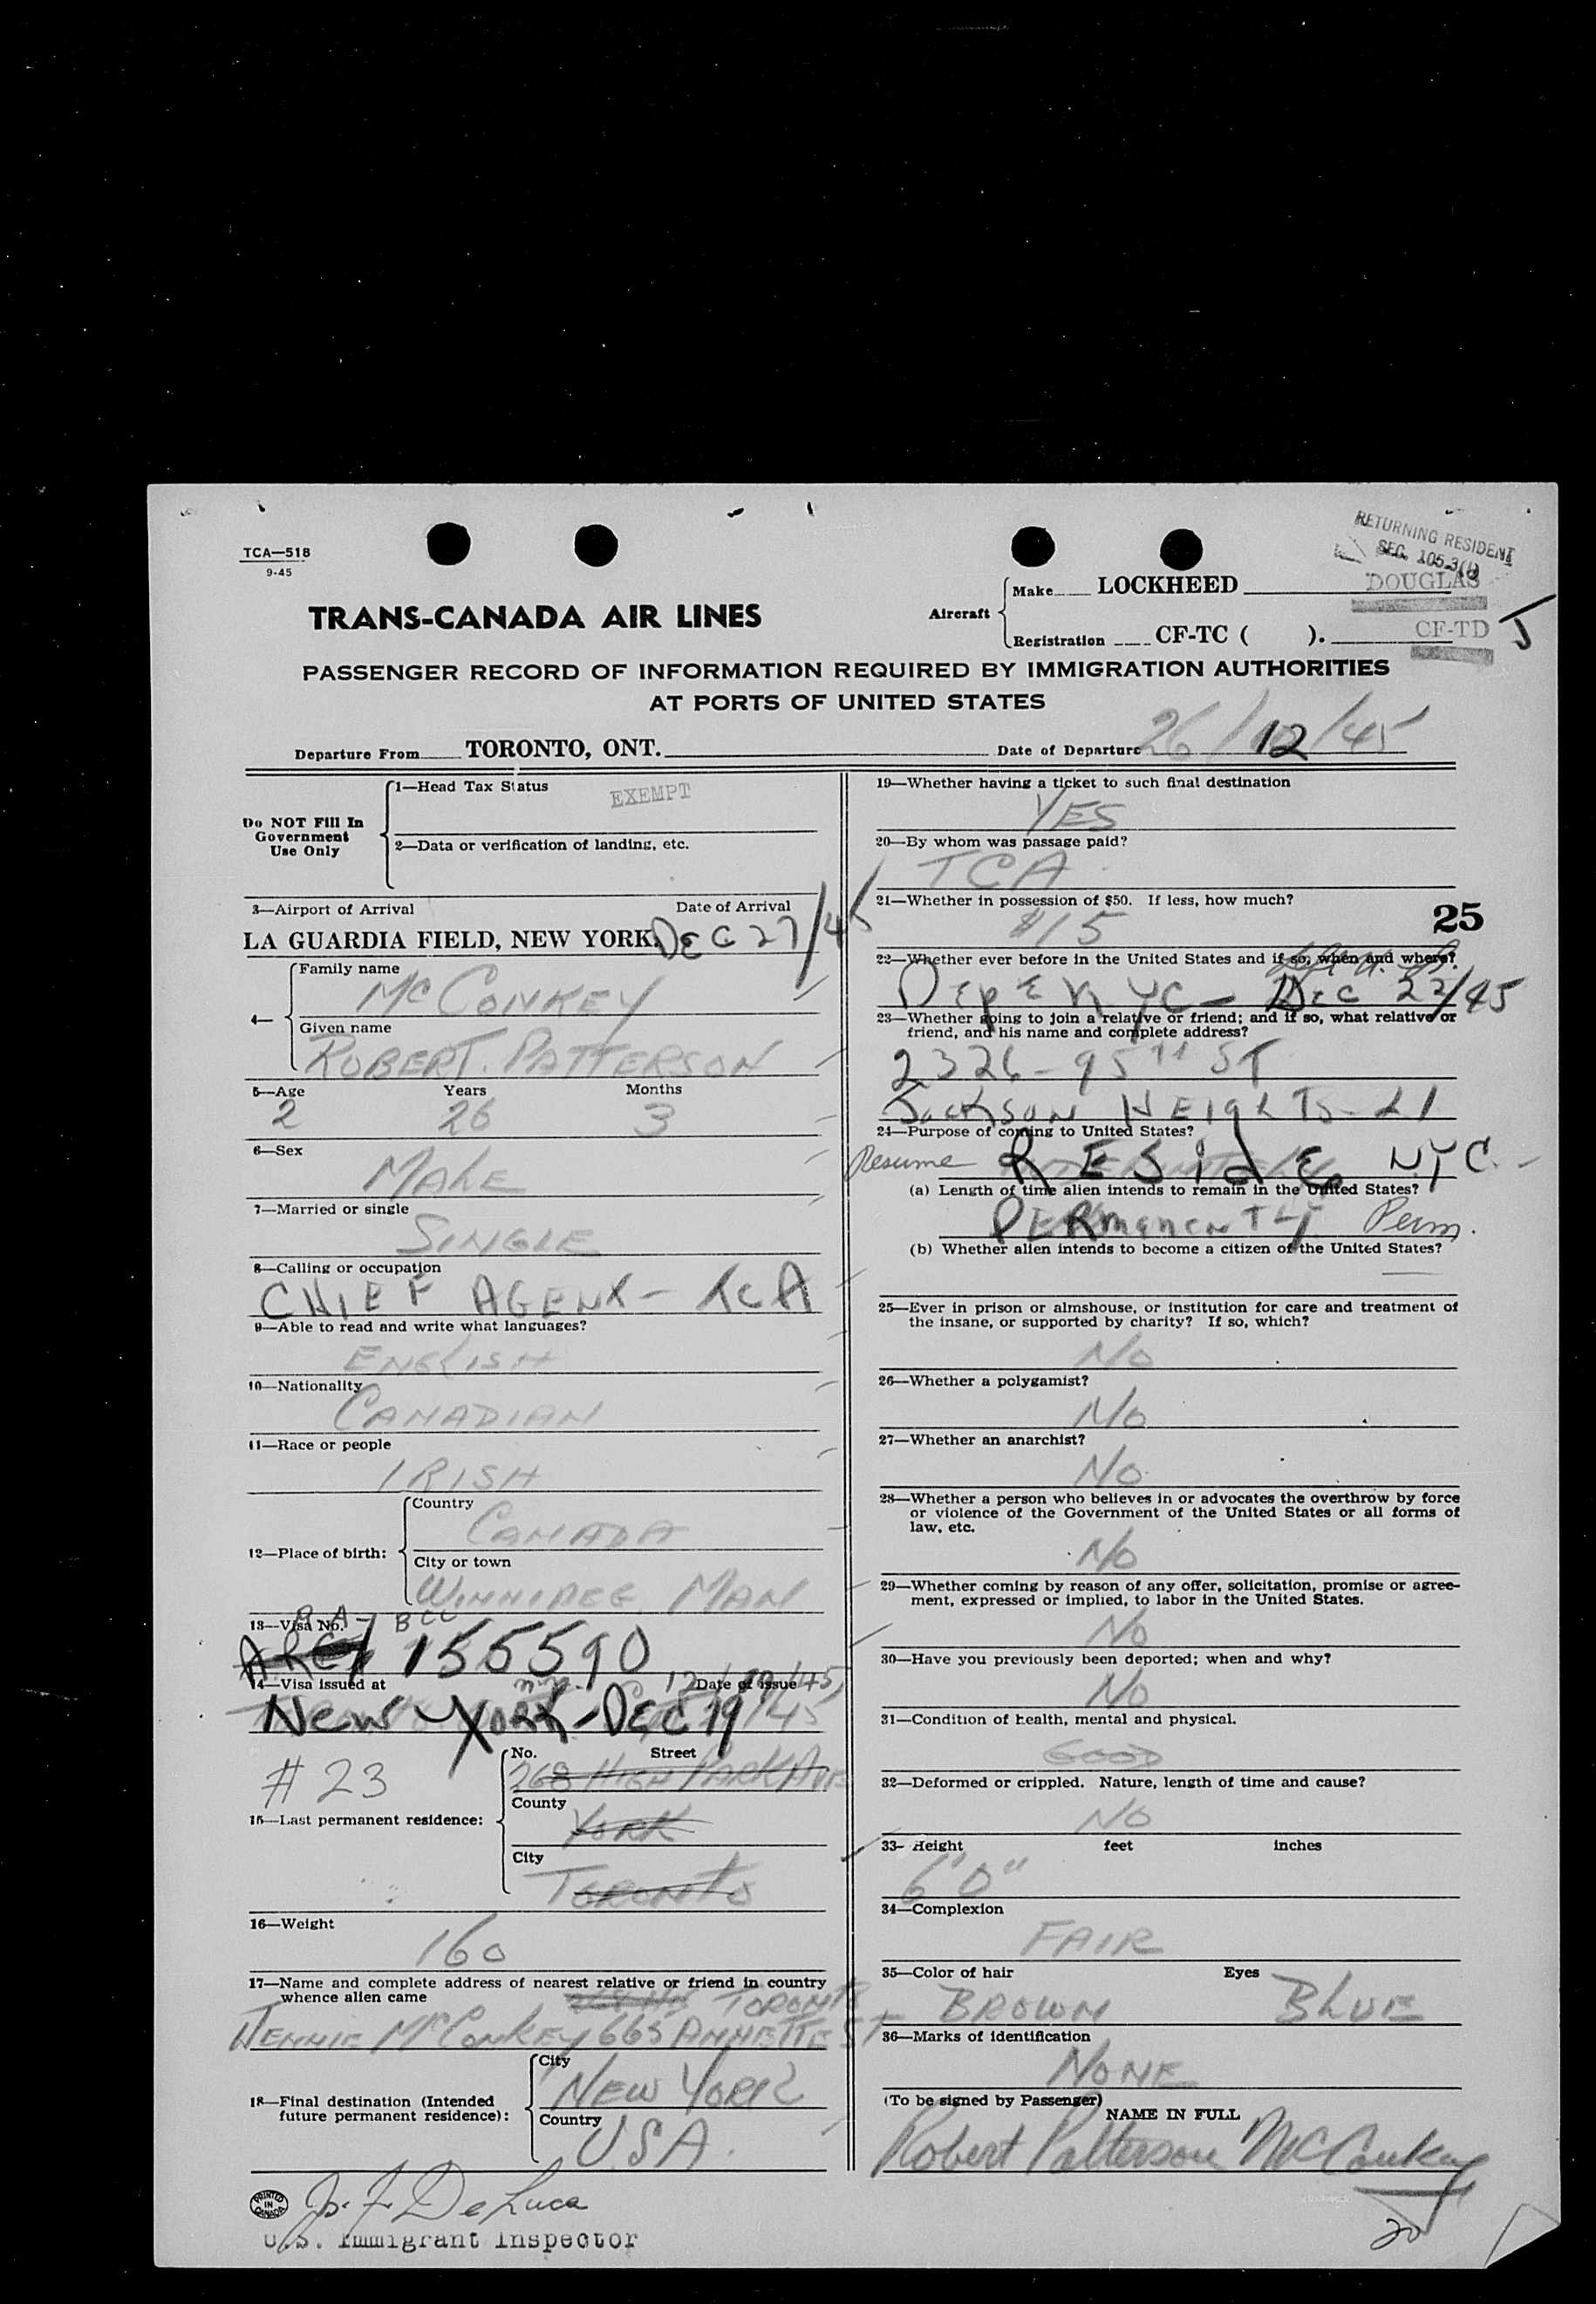 RETURNING RESIDENT
SEC. 105.3(1)
TCA—518
9-45
Make LOCKHEED DOUGLAS
TRANS-CANADA AIR LINES
Aircraft
Registration CF-TC ( ). CF-TD J
PASSENGER RECORD OF INFORMATION REQUIRED BY IMMIGRATION AUTHORITIES
AT PORTS OF UNITED STATES
Departure From TORONTO, ONT. Date of Departure 26/12/45
Do NOT Fill In
Government
Use Only
1—Head Tax Status EXEMPT
2—Data or verification of landing, etc.
3—Airport of Arrival Date of Arrival
LA GUARDIA FIELD, NEW YORK. DEC 27/45
4—
Family name
MCCONKEY
Given name
ROBERT. PATTERSON
5—Age Years Months
2 26 3
6—Sex
MALE
7—Married or single
SINGLE
8—Calling or occupation
CHIEF AGENT - TCA
9—Able to read and write what languages?
ENGLISH
10—Nationality
CANADIAN
11—Race or people
IRISH
12—Place of birth:
Country
CANADA
City or town
WINNIPEG MAN
13—Visa No.
155590
14—Visa issued at Date of issue
New York - DEC 19/45
# 23
15—Last permanent residence:
No. Street
268 HIGH PARK AVE
County
YORK
City
TORONTO
16—Weight
160
17—Name and complete address of nearest relative or friend in country
whence alien came
TORONTO
JENNIE MCCONKEY 665 ANNETTE ST
18—Final destination (Intended
future permanent residence):
City
NEW YORK
Country
USA.
PRINTED IN CANADA
J. F. DeLuca
U.S. Immigrant Inspector
19—Whether having a ticket to such final destination
YES
20—By whom was passage paid?
TCA
21—Whether in possession of $50. If less, how much?
$15
25
22—Whether ever before in the United States and if so, when and where?
NYC - DEC 22/45
23—Whether going to join a relative or friend; and if so, what relative or
friend, and his name and complete address?
2326 - 95TH ST
Jackson Heights - LI
24—Purpose of coming to United States?
Resume RESIDE NYC.
(a) Length of time alien intends to remain in the United States?
PERMANENTLY Perm.
(b) Whether alien intends to become a citizen of the United States?
25—Ever in prison or almshouse, or institution for care and treatment of
the insane, or supported by charity? If so, which?
No
26—Whether a polygamist?
No
27—Whether an anarchist?
No
28—Whether a person who believes in or advocates the overthrow by force
or violence of the Government of the United States or all forms of
law, etc.
No
29—Whether coming by reason of any offer, solicitation, promise or agree-
ment, expressed or implied, to labor in the United States.
No
30—Have you previously been deported; when and why?
No
31—Condition of health, mental and physical.
GOOD
32—Deformed or crippled. Nature, length of time and cause?
NO
33- Height feet inches
6'0"
34—Complexion
FAIR
35—Color of hair Eyes
BROWN BLUE
36—Marks of identification
NONE
(To be signed by Passenger)
NAME IN FULL
Robert Patterson McConkey
20